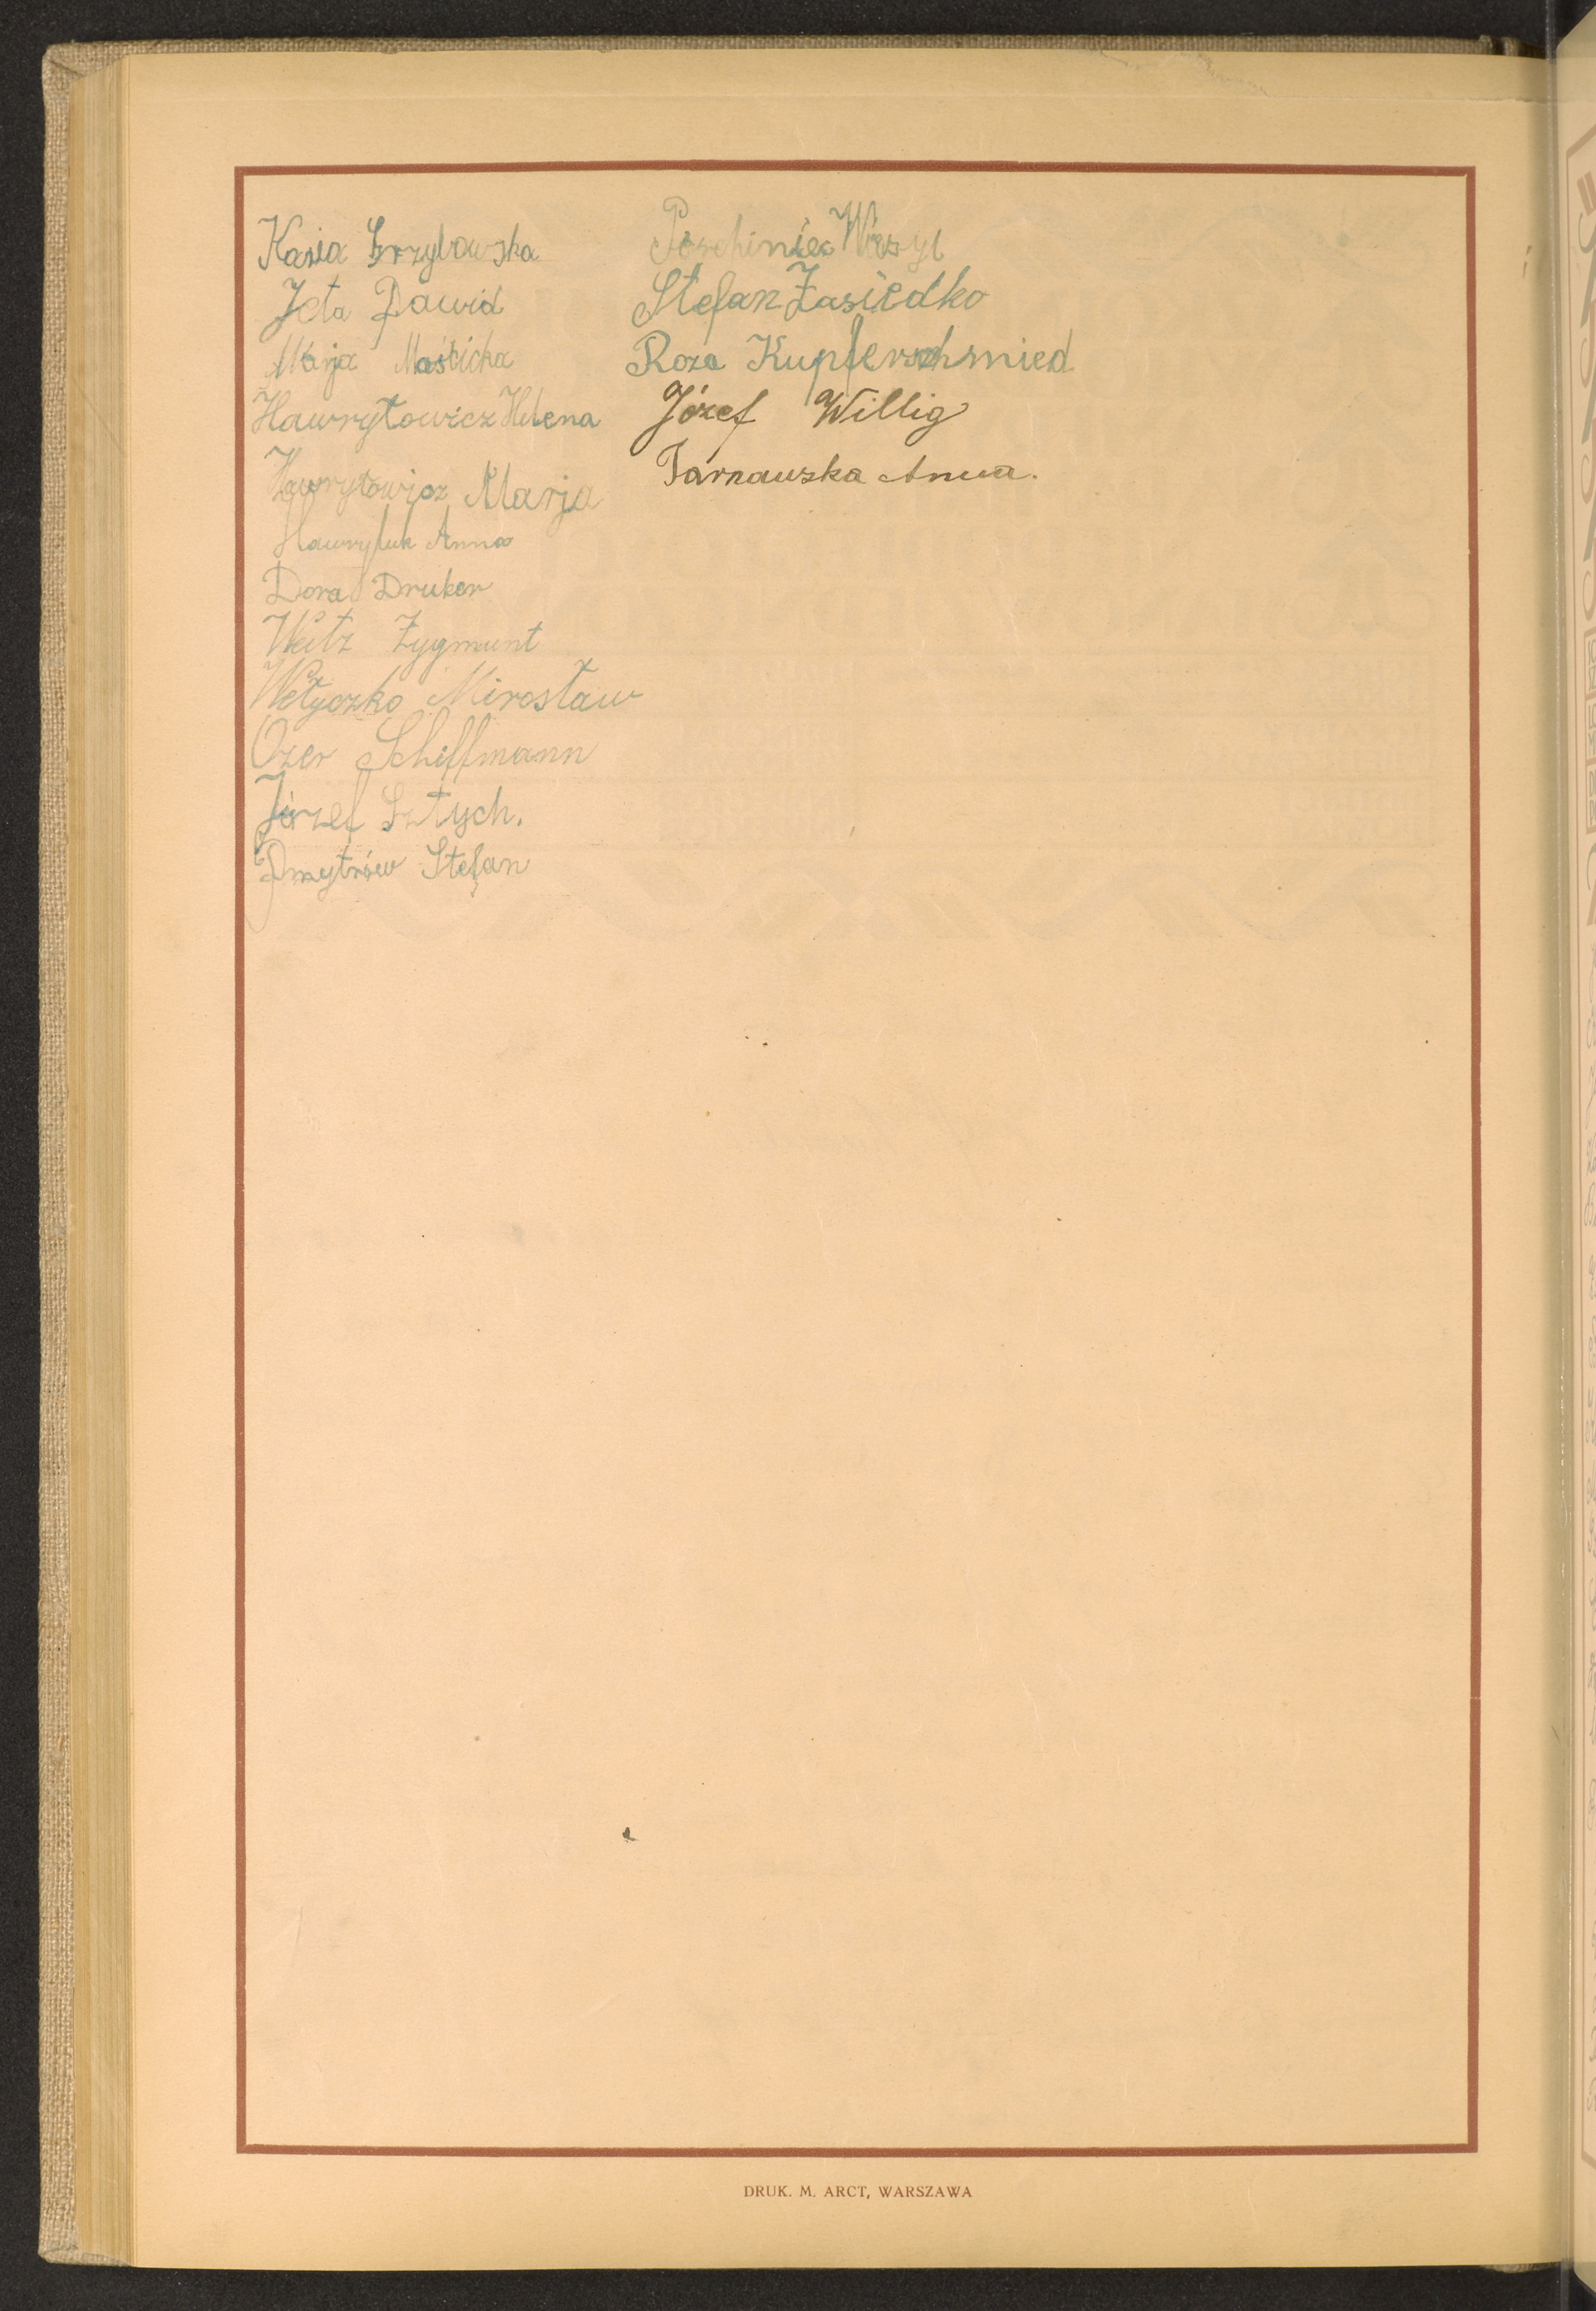 Kasia Grzybowska
Jeta Dawid
Marja Maścicha
Hawryłowicz Helena
Hawryłowicz Marja
Hawryluk Anna
Dora Druker
Weitz Zygmunt
Wełyczko Mirosław
Ozer Schiffmann
Józef Sztych.
Dmytrów Stefan
Wasyl
Stefan Zasiedko
Roza Kupferschmied
Józef Willig
Tarnawska Anna.
DRUK. M. ARCT, WARSZAWA